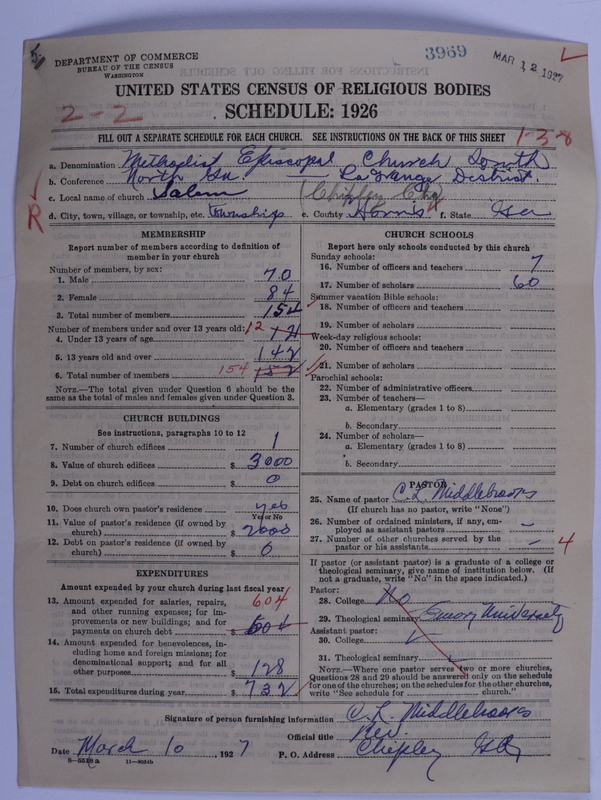 5.
3969
MAR 12 1927
DEPARTMENT OF COMMERCE
BUREAU OF THE CENSUS
WASHINGTON
UNITED STATES CENSUS OF RELIGIOUS BODIES
SCHEDULE: 1926
2-2
FILL OUT A SEPARATE SCHEDULE FOR EACH CHURCH. SEE INSTRUCTIONS ON THE BACK OF THIS SHEET
1-3-8
a. Denomination Methodist Episcopal Church South
b. Conference North Ga — LaGrange District.
c. Local name of church Salem (Chipley Chg
R
d. City, town, village, or township, etc. township e. County Harris f. State Ga
MEMBERSHIP
Report number of members according to definition of member in your church
Number of members, by sex:
1. Male 70
2. Female 84
3. Total number of members 154
Number of members under and over 13 years old:
4. Under 13 years of age 12 12
5. 13 years old and over 142
6. Total number of members 154 152
NOTE.—The total given under Question 6 should be the same as the total of males and females given under Question 3.
CHURCH BUILDINGS
See instructions, paragraphs 10 to 12
7. Number of church edifices 1
8. Value of church edifices $ 3000
9. Debt on church edifices $ 0
10. Does church own pastor's residence yes
Yes or No
11. Value of pastor's residence (if owned by church) $ 2000
12. Debt on pastor's residence (if owned by church) $ 0
EXPENDITURES
Amount expended by your church during last fiscal year
13. Amount expended for salaries, repairs, and other running expenses; for improvements or new buildings; and for payments on church debt $ 604 604
14. Amount expended for benevolences, including home and foreign missions; for denominational support; and for all other purposes $ 128
15. Total expenditures during year $ 732
CHURCH SCHOOLS
Report here only schools conducted by this church
Sunday schools:
16. Number of officers and teachers 7
17. Number of scholars 60
Summer vacation Bible schools:
18. Number of officers and teachers
19. Number of scholars
Week-day religious schools:
20. Number of officers and teachers
21. Number of scholars
Parochial schools:
22. Number of administrative officers
23. Number of teachers—
a. Elementary (grades 1 to 8)
b. Secondary
24. Number of scholars—
a. Elementary (grades 1 to 8)
b. Secondary
PASTOR
25. Name of pastor C. L. Middlebrooks
(If church has no pastor, write "None")
26. Number of ordained ministers, if any, employed as assistant pastors –
27. Number of other churches served by the pastor or his assistants – 4
If pastor (or assistant pastor) is a graduate of a college or theological seminary, give name of institution below. (If not a graduate, write "No" in the space indicated.)
Pastor:
28. College No
29. Theological seminary Emory University
Assistant pastor:
30. College
31. Theological seminary
NOTE.—Where one pastor serves two or more churches, Questions 28 and 29 should be answered only on the schedule for one of the churches; on the schedules for the other churches, write "See schedule for church."
Signature of person furnishing information C. L. Middlebrooks
Official title Rev.
Date March 10, 1927 P. O. Address Chipley Ga
8—5518a 11—9054b